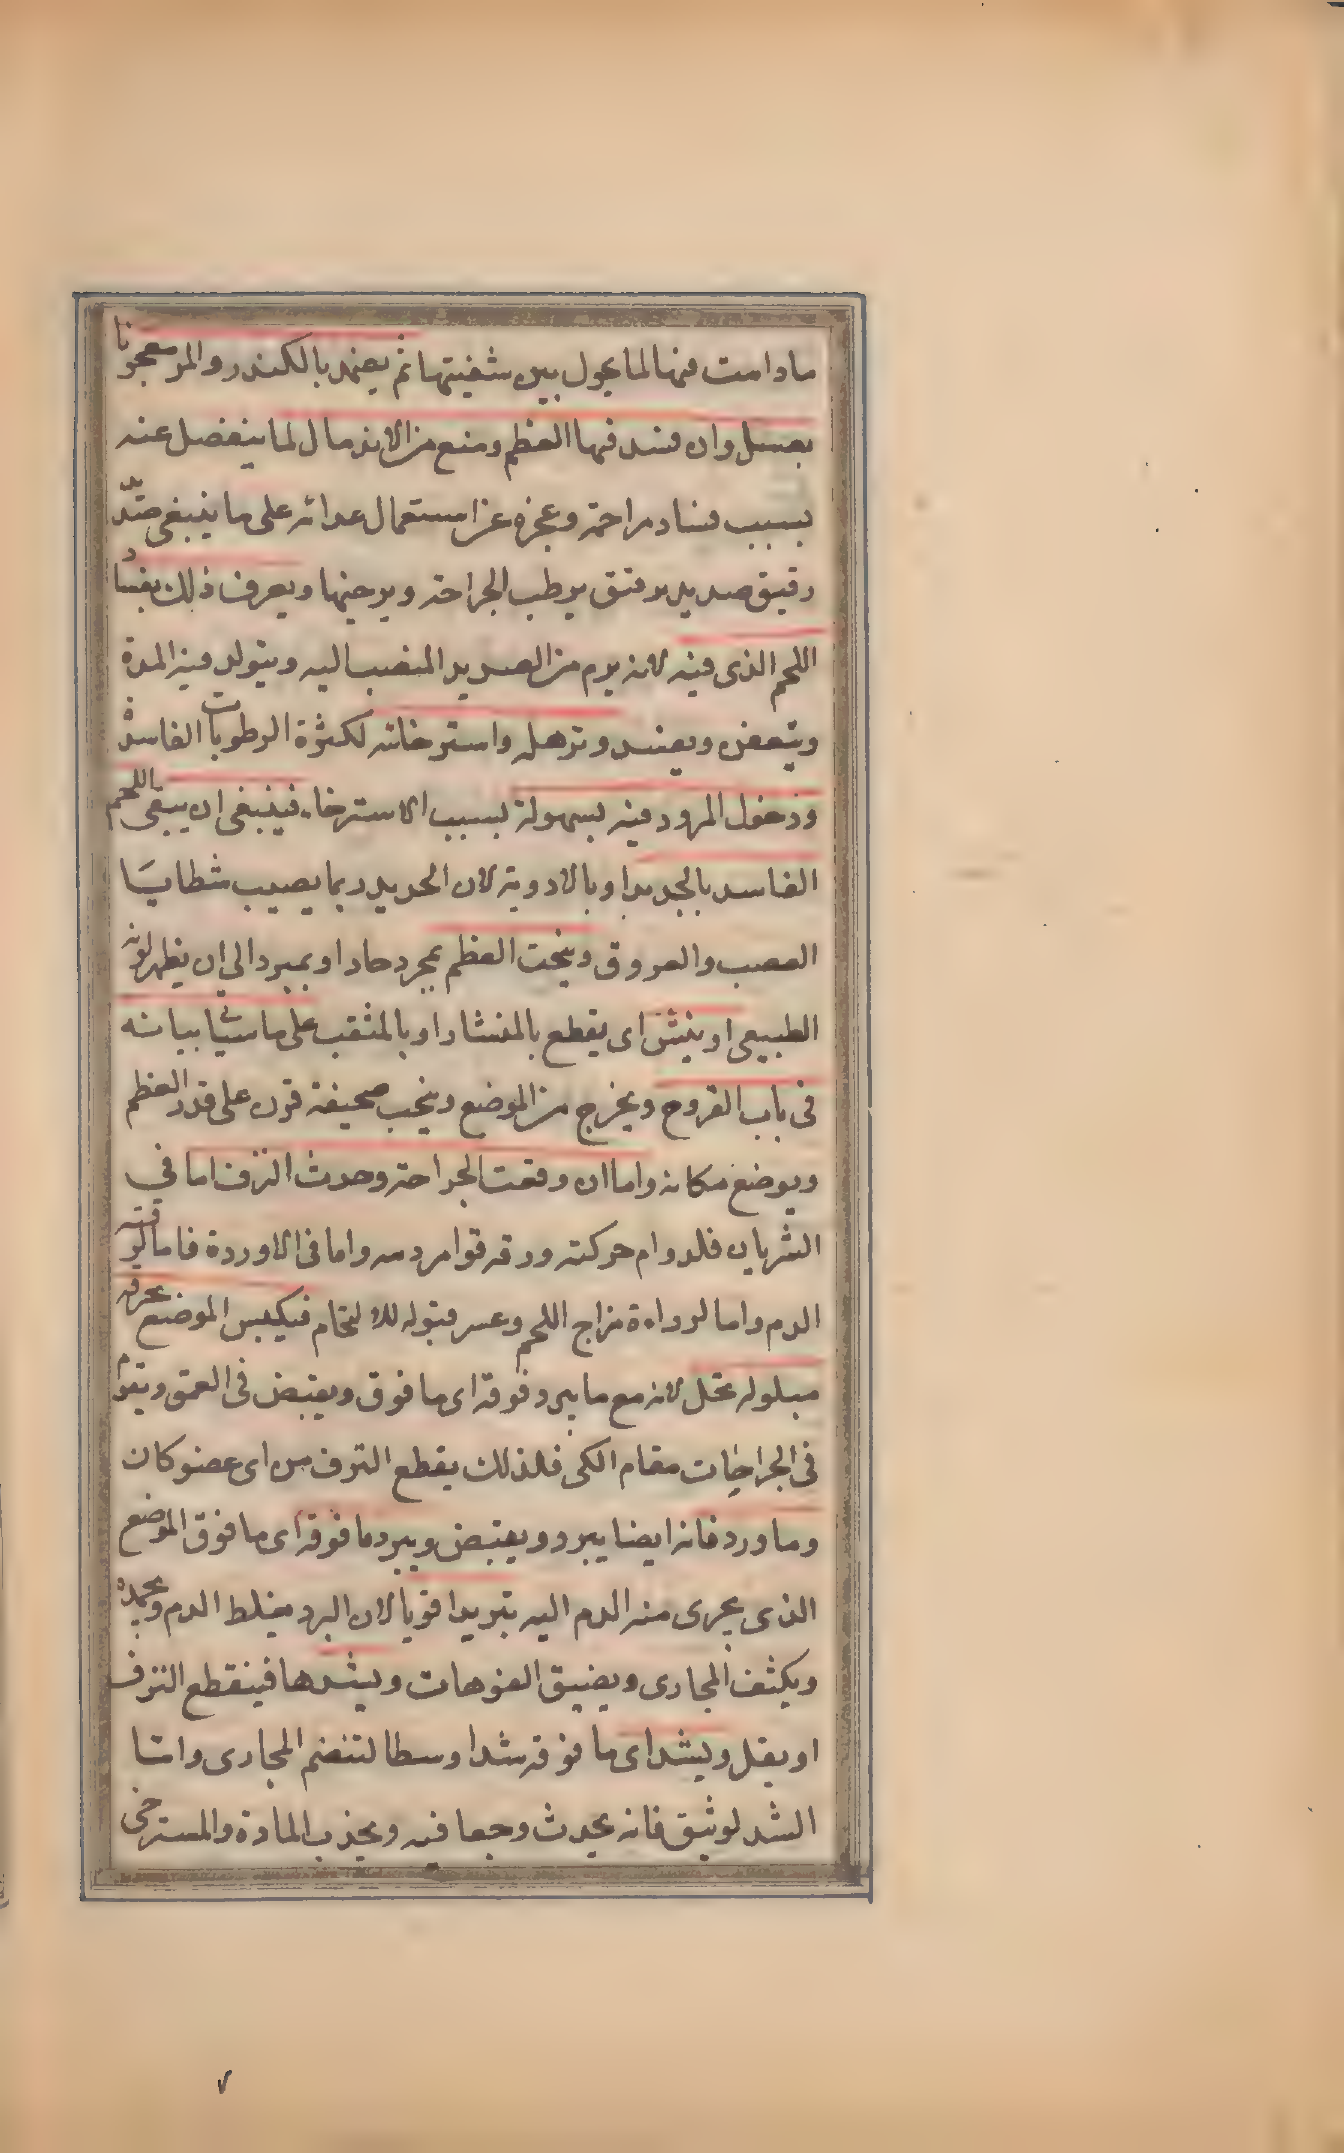 مادامت فيها لما يحول بين شفيتها ثم يضمد بالكندر والمر معجونا
بعسل وان فسد فيها العظم ومنع من الاندمال لما ينفصل عنه
بسبب فساد مزاجه وعجزه عن استعمال غذائه على ما ينبغي صديد
رقيق صديد يرقق يرطب الجراحة ويرخيها ويعرف ذلك بفساد
اللحم الذى فيه لانه يرم من الصديد المنصب اليه ويتولد فيه المدة
ويتعفن ويفسد وترهله واسترخائه لكثرة الرطوبات الفاسدة
ودخول المرود فيه بسهولة بسبب الاسترخاء فينبغى ان يبقى اللحم
الفاسد بالحديد او بالادوية لان الحديد ربما يصيب شظايا
العصب والعروق وينحت العظم بمجرد حاد او بمبرد الى ان يظهر لونه
الطبيعى او ينشر اى يقطع بالمنشار او بالمثقب على ما سيأتى بيانه
فى باب القروح ويخرج من الموضع وينحت صحيفة قرن على قدر العظم
ويوضع مكانه واما ان وقعت الجراحة وحدث النزف اما في
الشريان فلدوام حركته ورقه قوام دمه واما فى الاوردة فاما لرقته
الدم واما لرداءة مزاج اللحم وعسر قبوله للالتحام فيكبس الموضع بخرقه
مبلوله بخل لانه مع ما يبرد فوقه اى ما فوق ويقبض فى العمق ويقوم
فى الجراحات مقام الكى فلذلك يقطع النزف من اى عضو كان
وماورد فانه ايضا يبرد ويقبض ويبرد ما فوقه اى ما فوق الموضع
الذى يجرى منه الدم اليه تبريدا قويا لان البرد يغلط الدم ويجمده
ويكثف المجارى ويضيق الفوهات ويشدها فينقطع النزف
او يقل ويشد اى ما فوقه شدا وسطا لتنضم المجارى وامتا
الشد لوثيق فانه يحدث وجعا فيه ويجذب المادة والمسترخى
٧